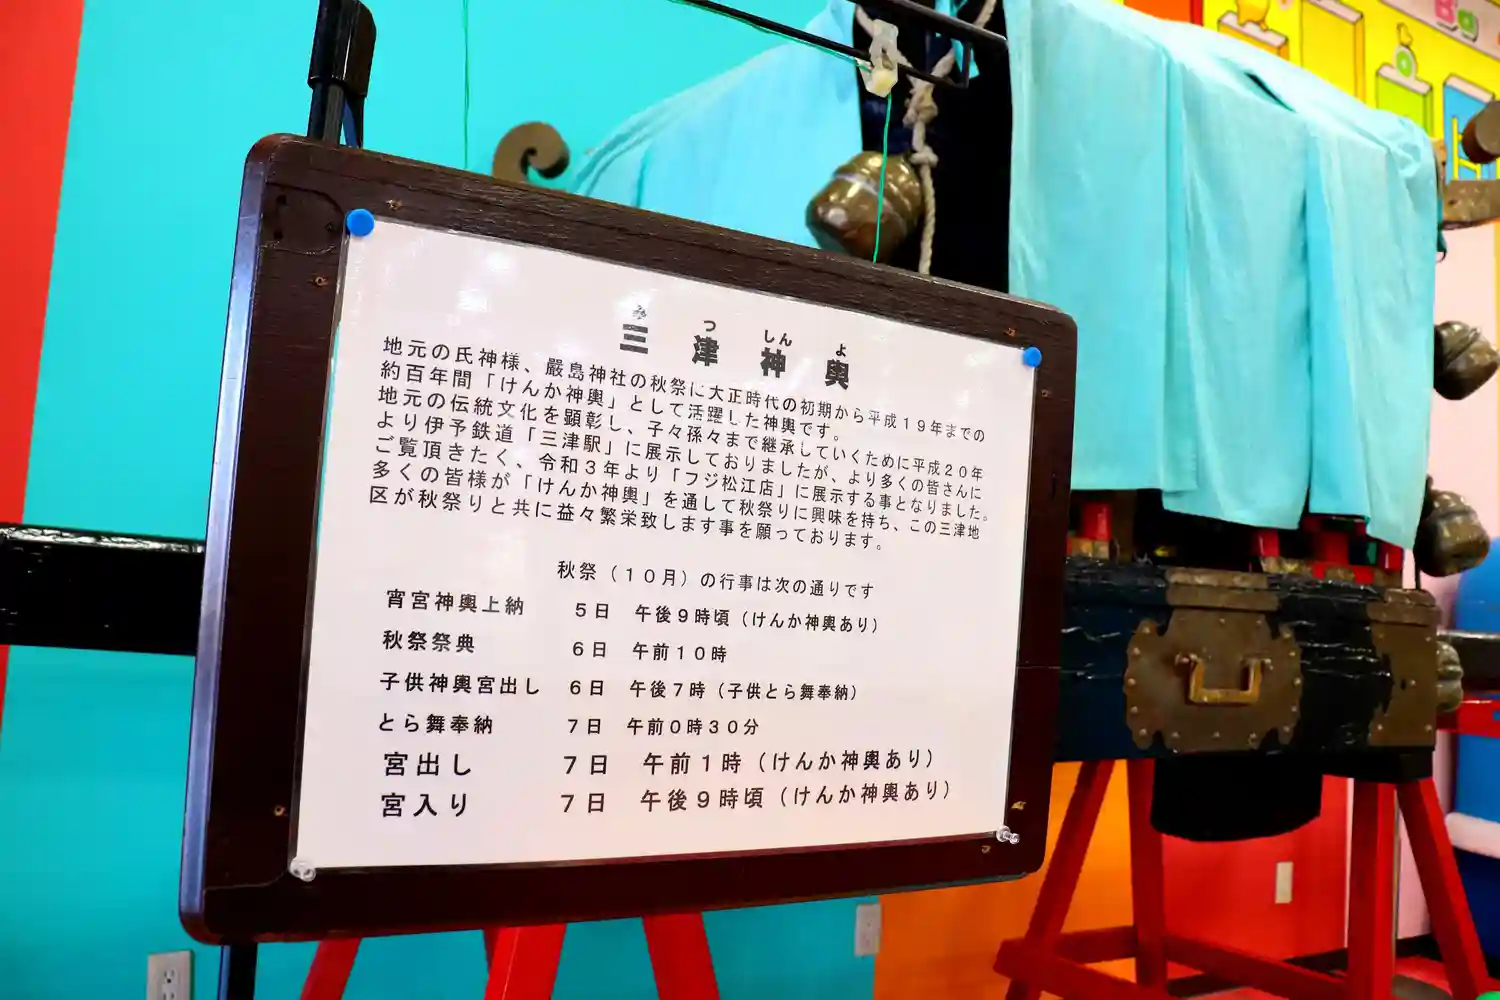 み つ しん よ
三 津 神 輿
地元の氏神様、嚴島神社の秋祭に大正時代の初期から平成19年までの
約百年間「けんか神輿」として活躍した神輿です。
地元の伝統文化を顕彰し、子々孫々まで継承していくために平成20年
より伊予鉄道「三津駅」に展示しておりましたが、より多くの皆さんに
ご覧頂きたく、令和3年より「フジ松江店」に展示する事となりました。
多くの皆様が「けんか神輿」を通して秋祭りに興味を持ち、この三津地
区が秋祭りと共に益々繁栄致します事を願っております。
秋祭(10月)の行事は次の通りです
宵宮神輿上納 5日 午後9時頃(けんか神輿あり)
秋祭祭典 6日 午前10時
子供神輿宮出し 6日 午後7時(子供とら舞奉納)
とら舞奉納 7日 午前0時30分
宮出し 7日 午前1時(けんか神輿あり)
宮入り 7日 午後9時頃(けんか神輿あり)